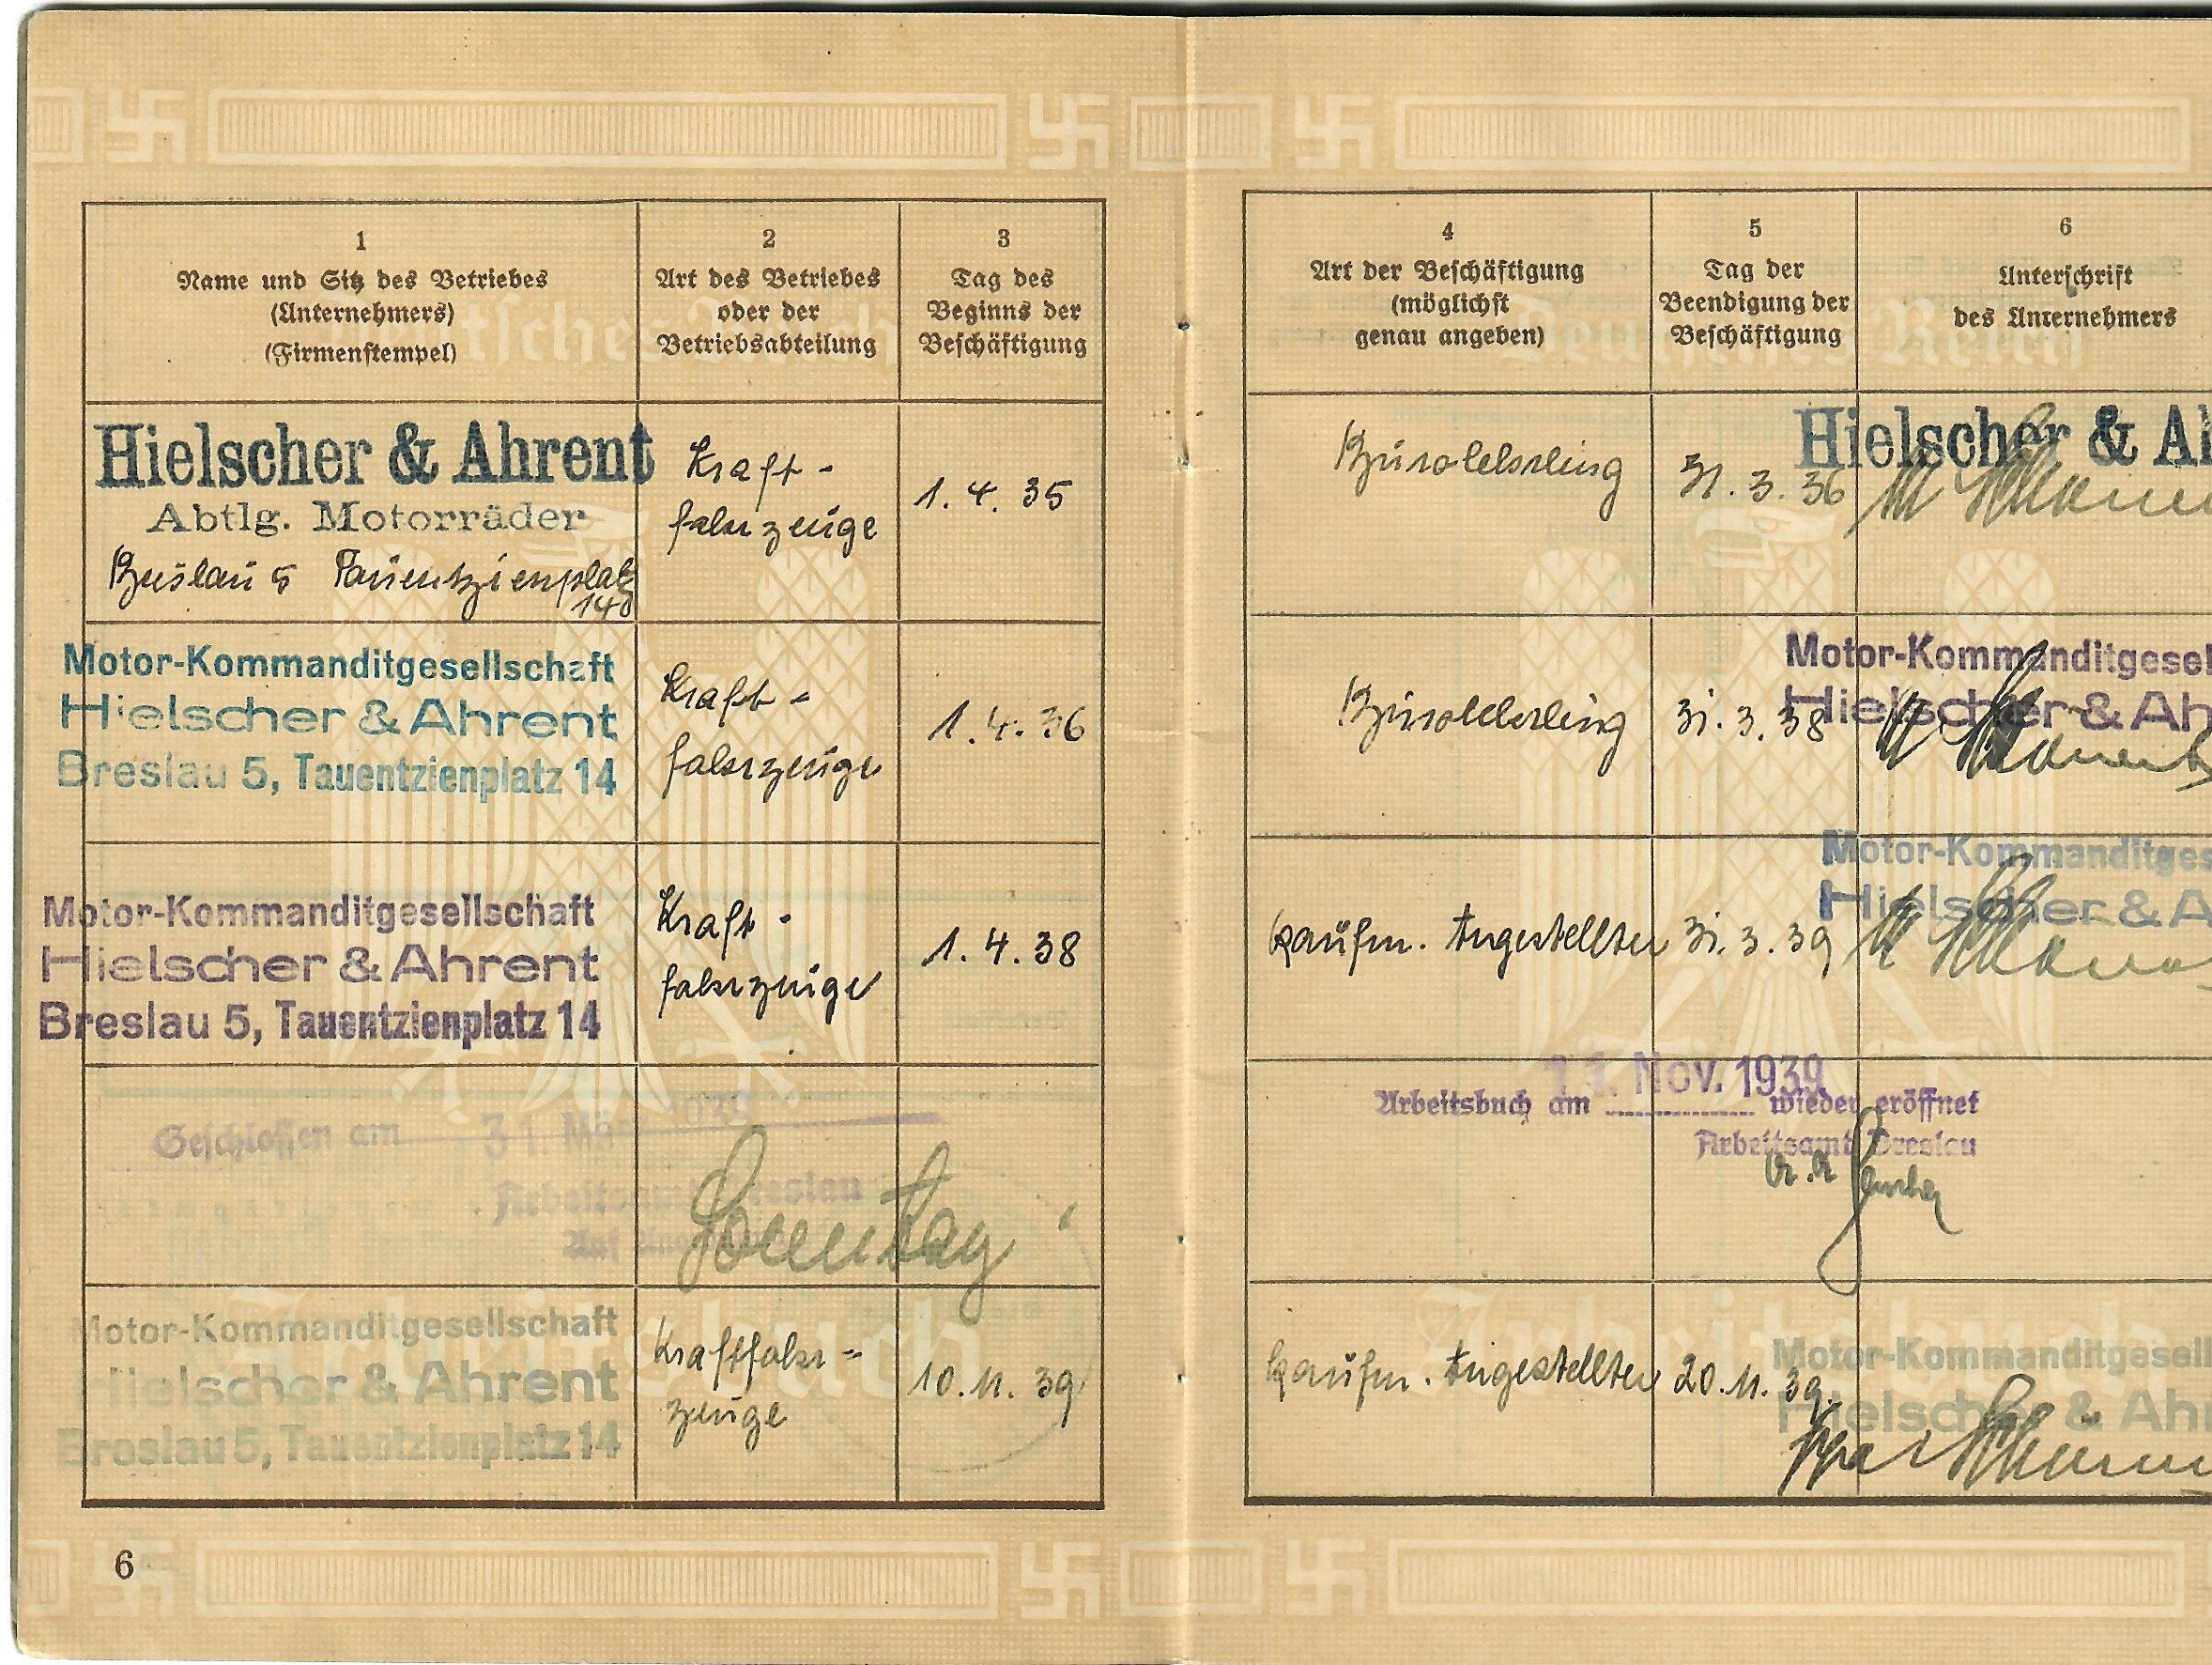 1
Name und Sitz des Betriebes
(Unternehmers)
(Firmenstempel)
2
Art des Betriebes
oder der
Betriebsabteilung
3
Tag des
Beginns der
Beschäftigung
Hielscher & Ahrent
Abtlg. Motorräder
Breslau 5 Tauentzienplatz
14
Kraft-
fahrzeuge
1. 4. 35
Motor-Kommanditgesellschaft
Hielscher & Ahrent
Breslau 5, Tauentzienplatz 14
Kraft-
fahrzeuge
1. 4. 36
Motor-Kommanditgesellschaft
Hielscher & Ahrent
Breslau 5, Tauentzienplatz 14
Kraft-
fahrzeuge
1. 4. 38
Geschlossen am 31. März 1939
Arbeitsamt Breslau
Sonntag
Motor-Kommanditgesellschaft
Hielscher & Ahrent
Breslau 5, Tauentzienplatz 14
Kraftfahr-
zeuge
10. 11. 39
6
4
Art der Beschäftigung
(möglichst
genau angeben)
5
Tag der
Beendigung der
Beschäftigung
6
Unterschrift
des Unternehmers
Bürolehrling
31. 3. 36
Hielscher & Ah
Bürolehrling
31. 3. 38
Motor-Kommanditgesel
Hielscher & Ah
kaufm. Angestellter
31. 3. 39
Motor-Kommanditges
Hielscher & A
11. Nov. 1939
Arbeitsbuch am wieder eröffnet
Arbeitsamt Breslau
kaufm. Angestellter
20. 11. 39.
Motor-Kommanditgesell
Hielscher & Ahr